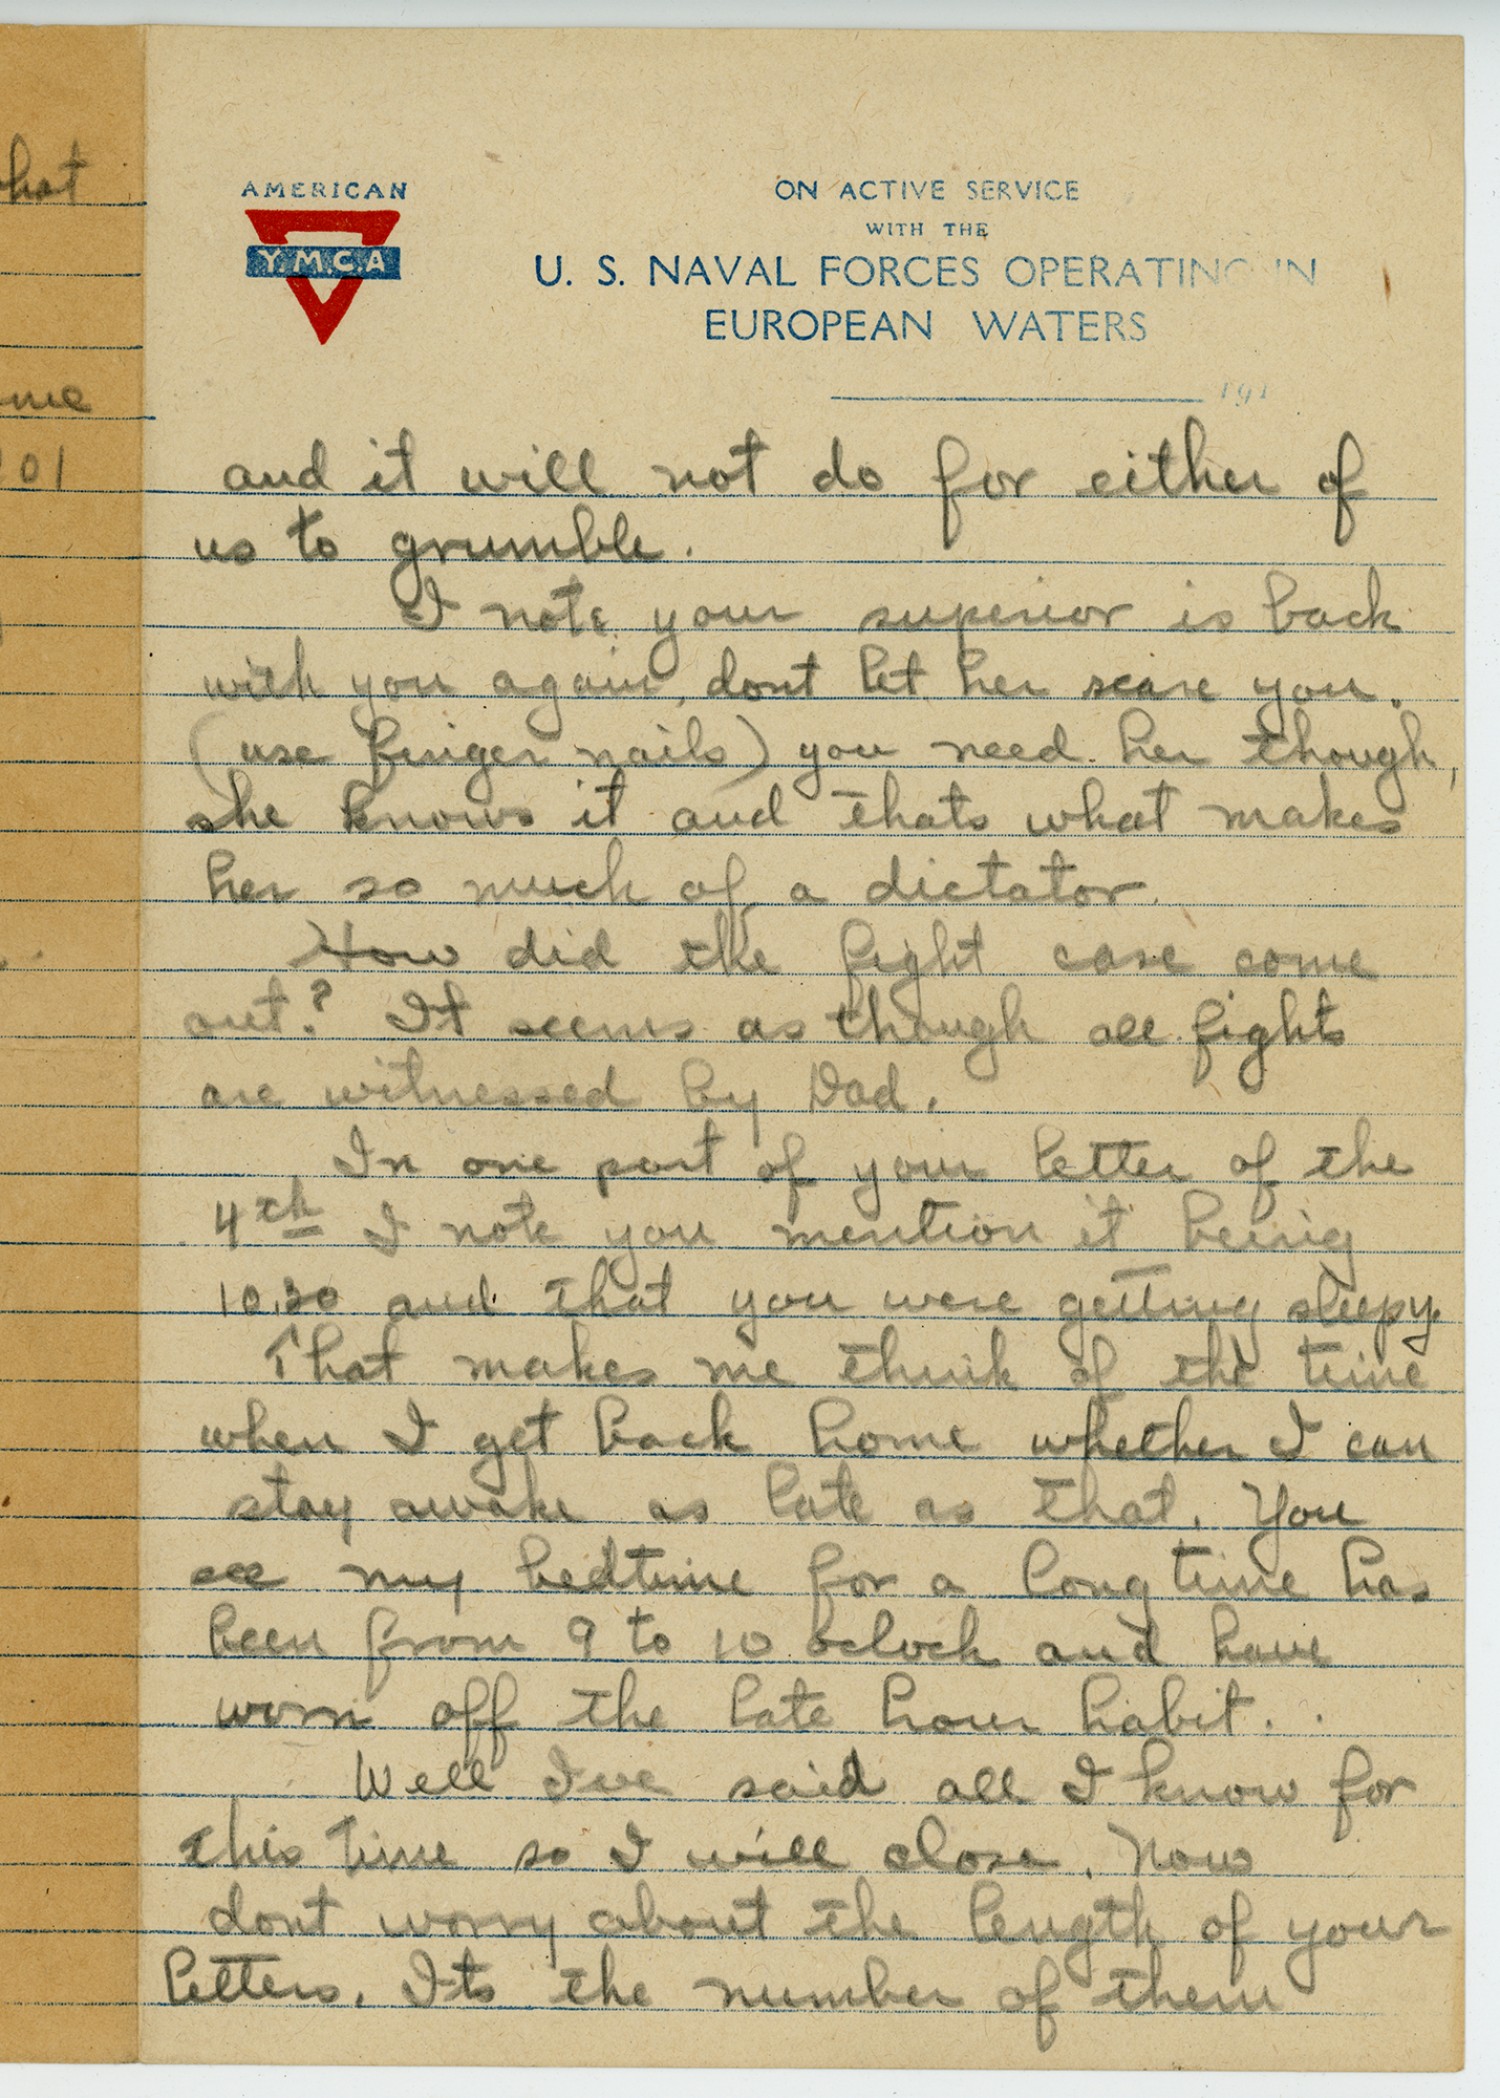 hat
me
101
AMERICAN
Y.M.C.A
ON ACTIVE SERVICE
WITH THE
U. S. NAVAL FORCES OPERATING IN
EUROPEAN WATERS
191
and it will not do for either of
us to grumble.
I note your superior is back
with you again, dont let her scare you.
(use finger nails) you need her though,
she knows it and thats what makes
her so much of a dictator.
How did the fight case come
out? It seems as though all fights
are witnessed by Dad.
In one part of your letter of the
4th I note you mention it being
10.30 and that you were getting sleepy.
That makes me think of the time
when I get back home whether I can
stay awake as late as that. You
see my bedtime for a long time has
been from 9 to 10 oclock and have
worn off the late hour habit. .
Well Ive said all I know for
this time so I will close. Now
dont worry about the length of your
letters. Its the number of them